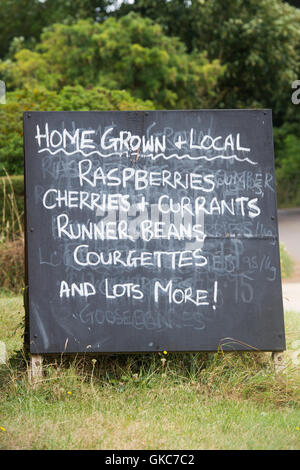 HOME GROWN + LOCAL
RASPBERRIES
CHERRIES + CURRANTS
RUNNER BEANS
COURGETTES
AND LOTS MORE!